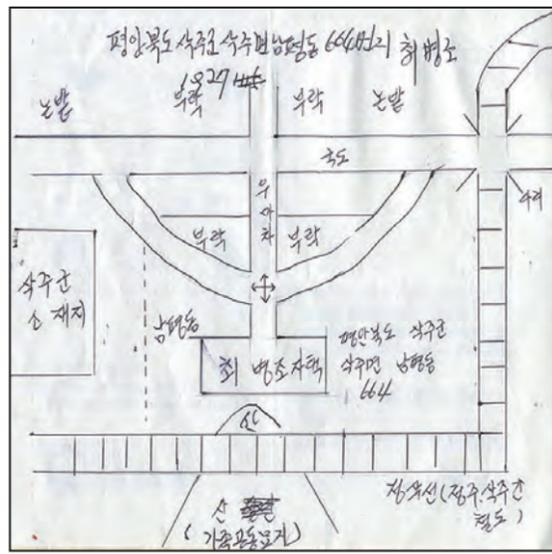 평안북도 삭주군 삭주면 남평동 664번지 최병조
부락
부락
논밭
논밭
국도
우마차
부락
부락
삭주군
소재지
남평동
최 병조자택
평안북도 삭주군
삭주면 남평동
664
산
산
(가족공동묘지)
정삭선(정주.삭주간
철도)